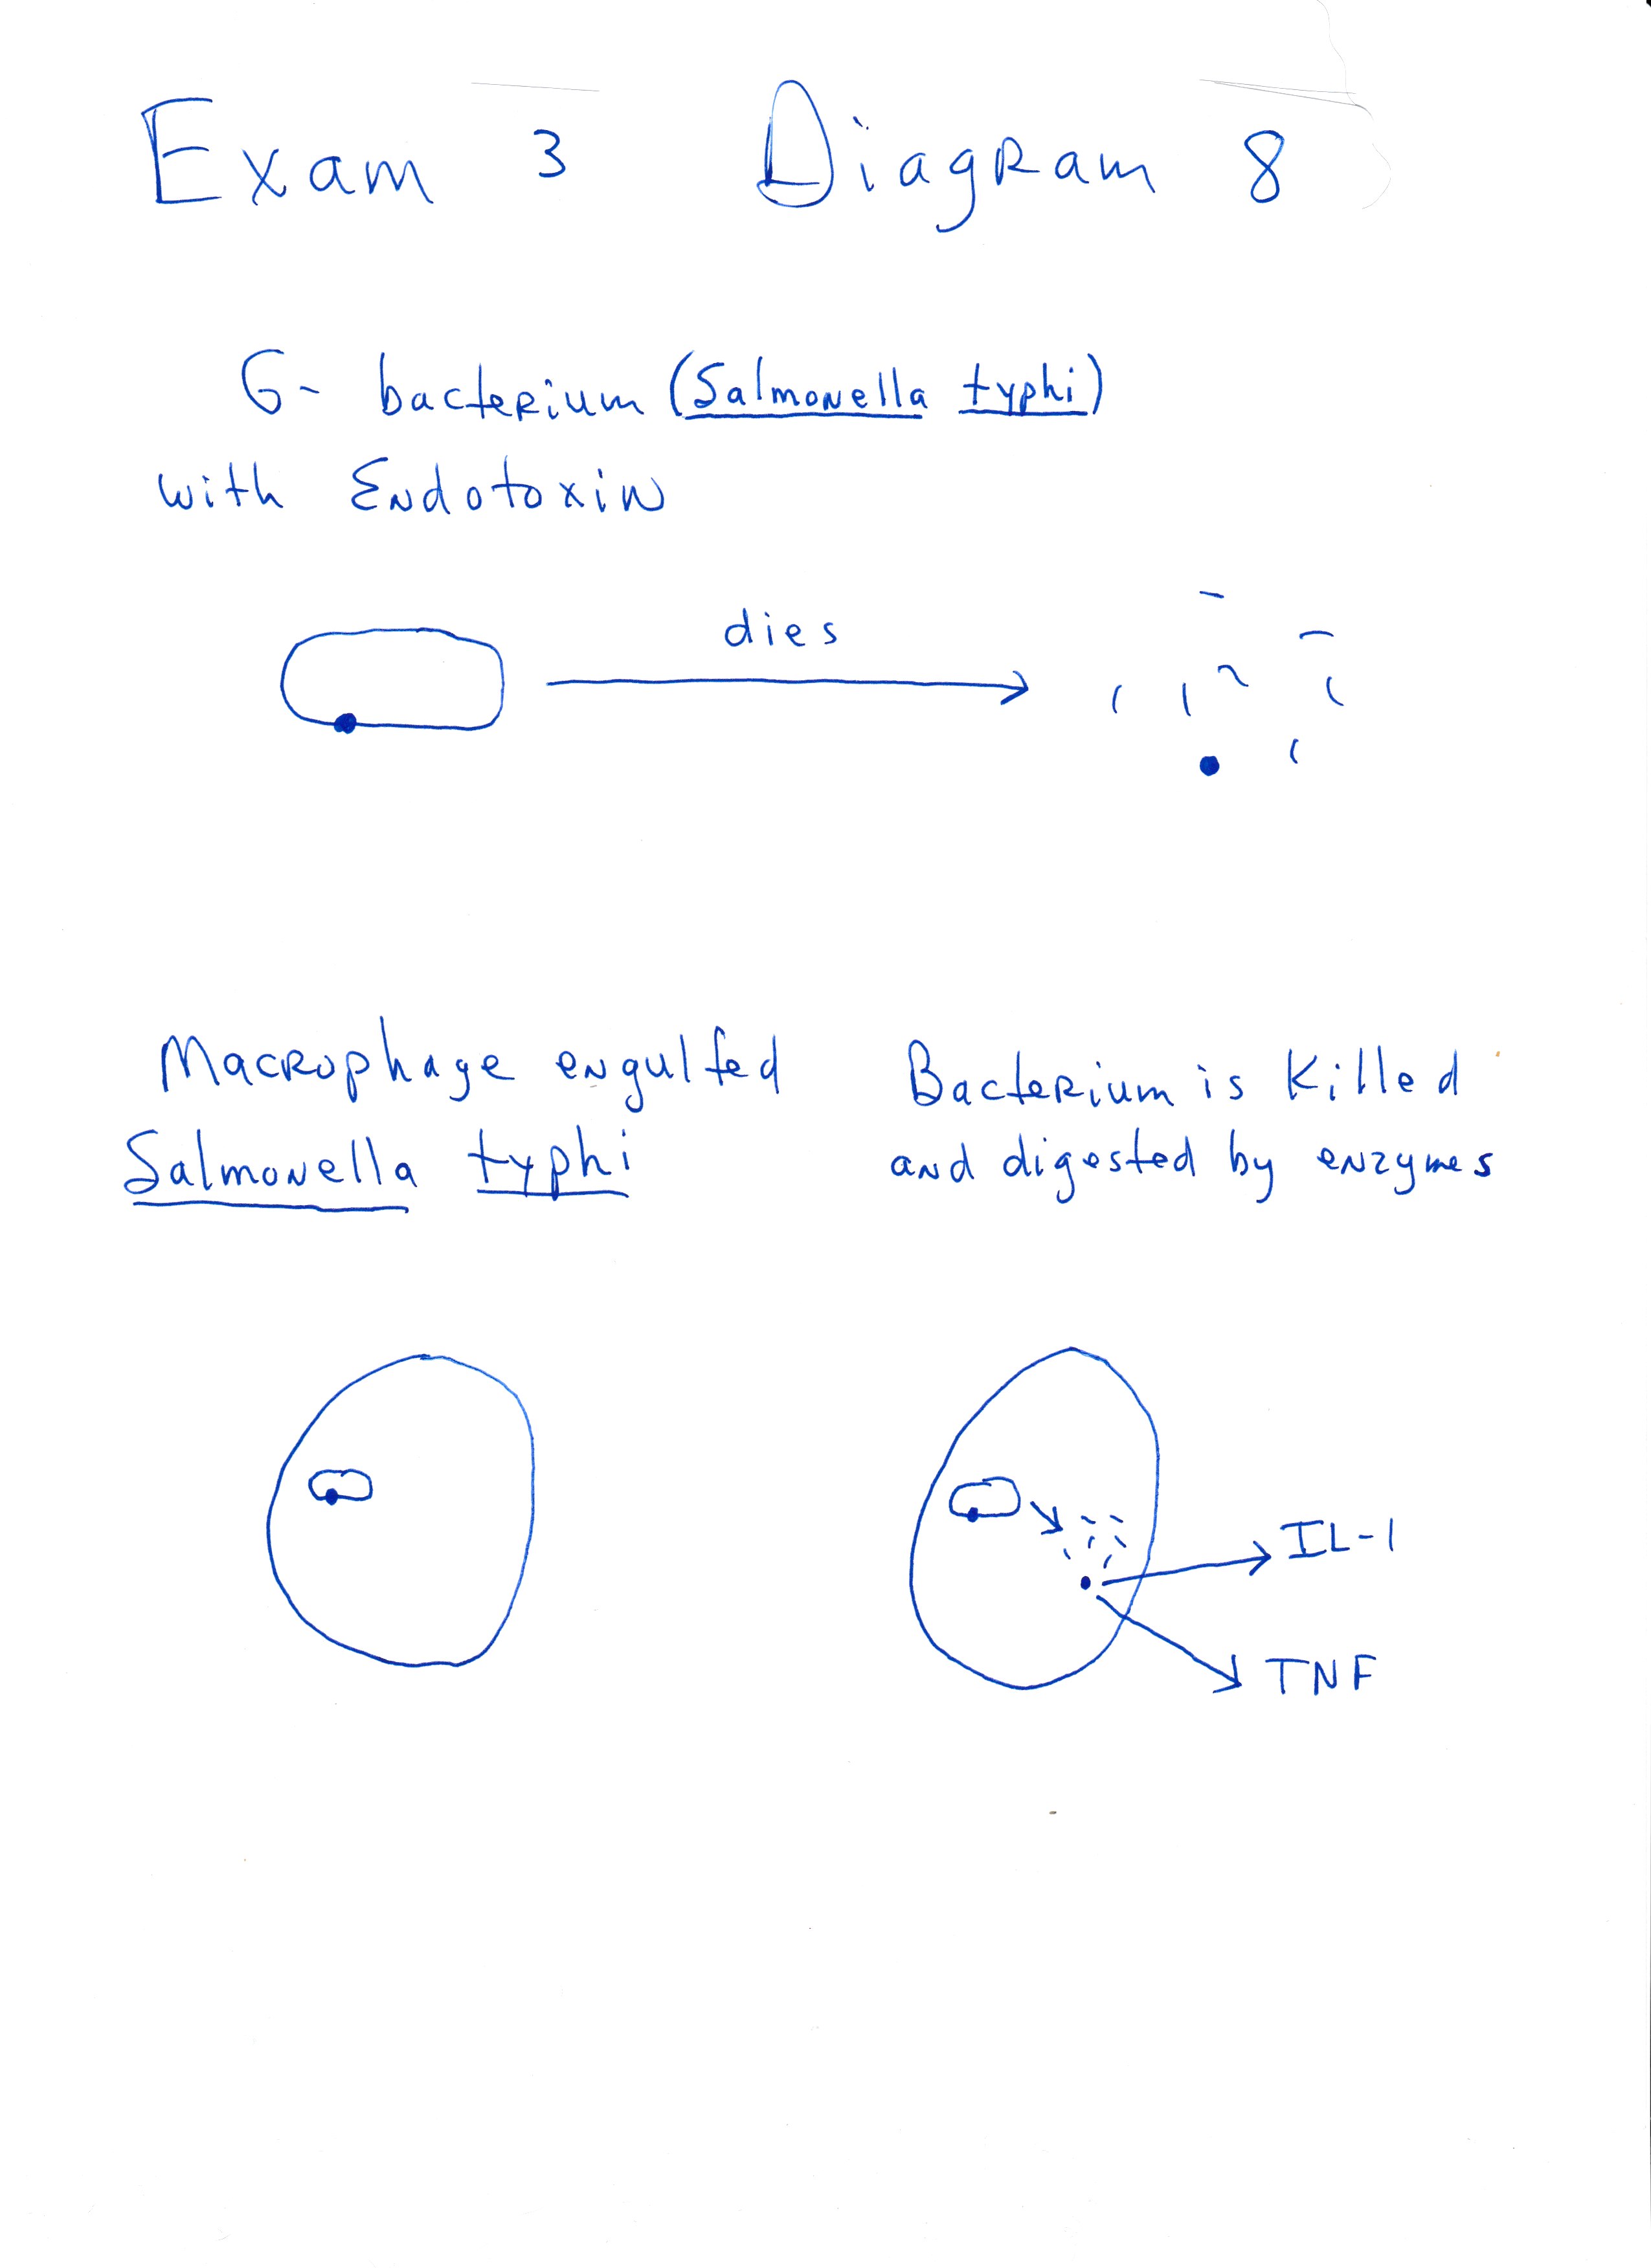 Exam 3 Diagram 8
G- bacterium (Salmonella typhi)
with Endotoxin
dies
Macrophage engulfed
Salmonella typhi
Bacterium is Killed
and digested by enzymes
IL-1
TNF